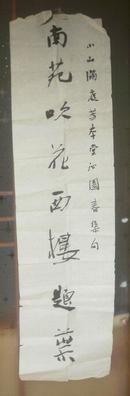 小山滿庭芳本堂沁園春集句
南苑吹花西樓題葉